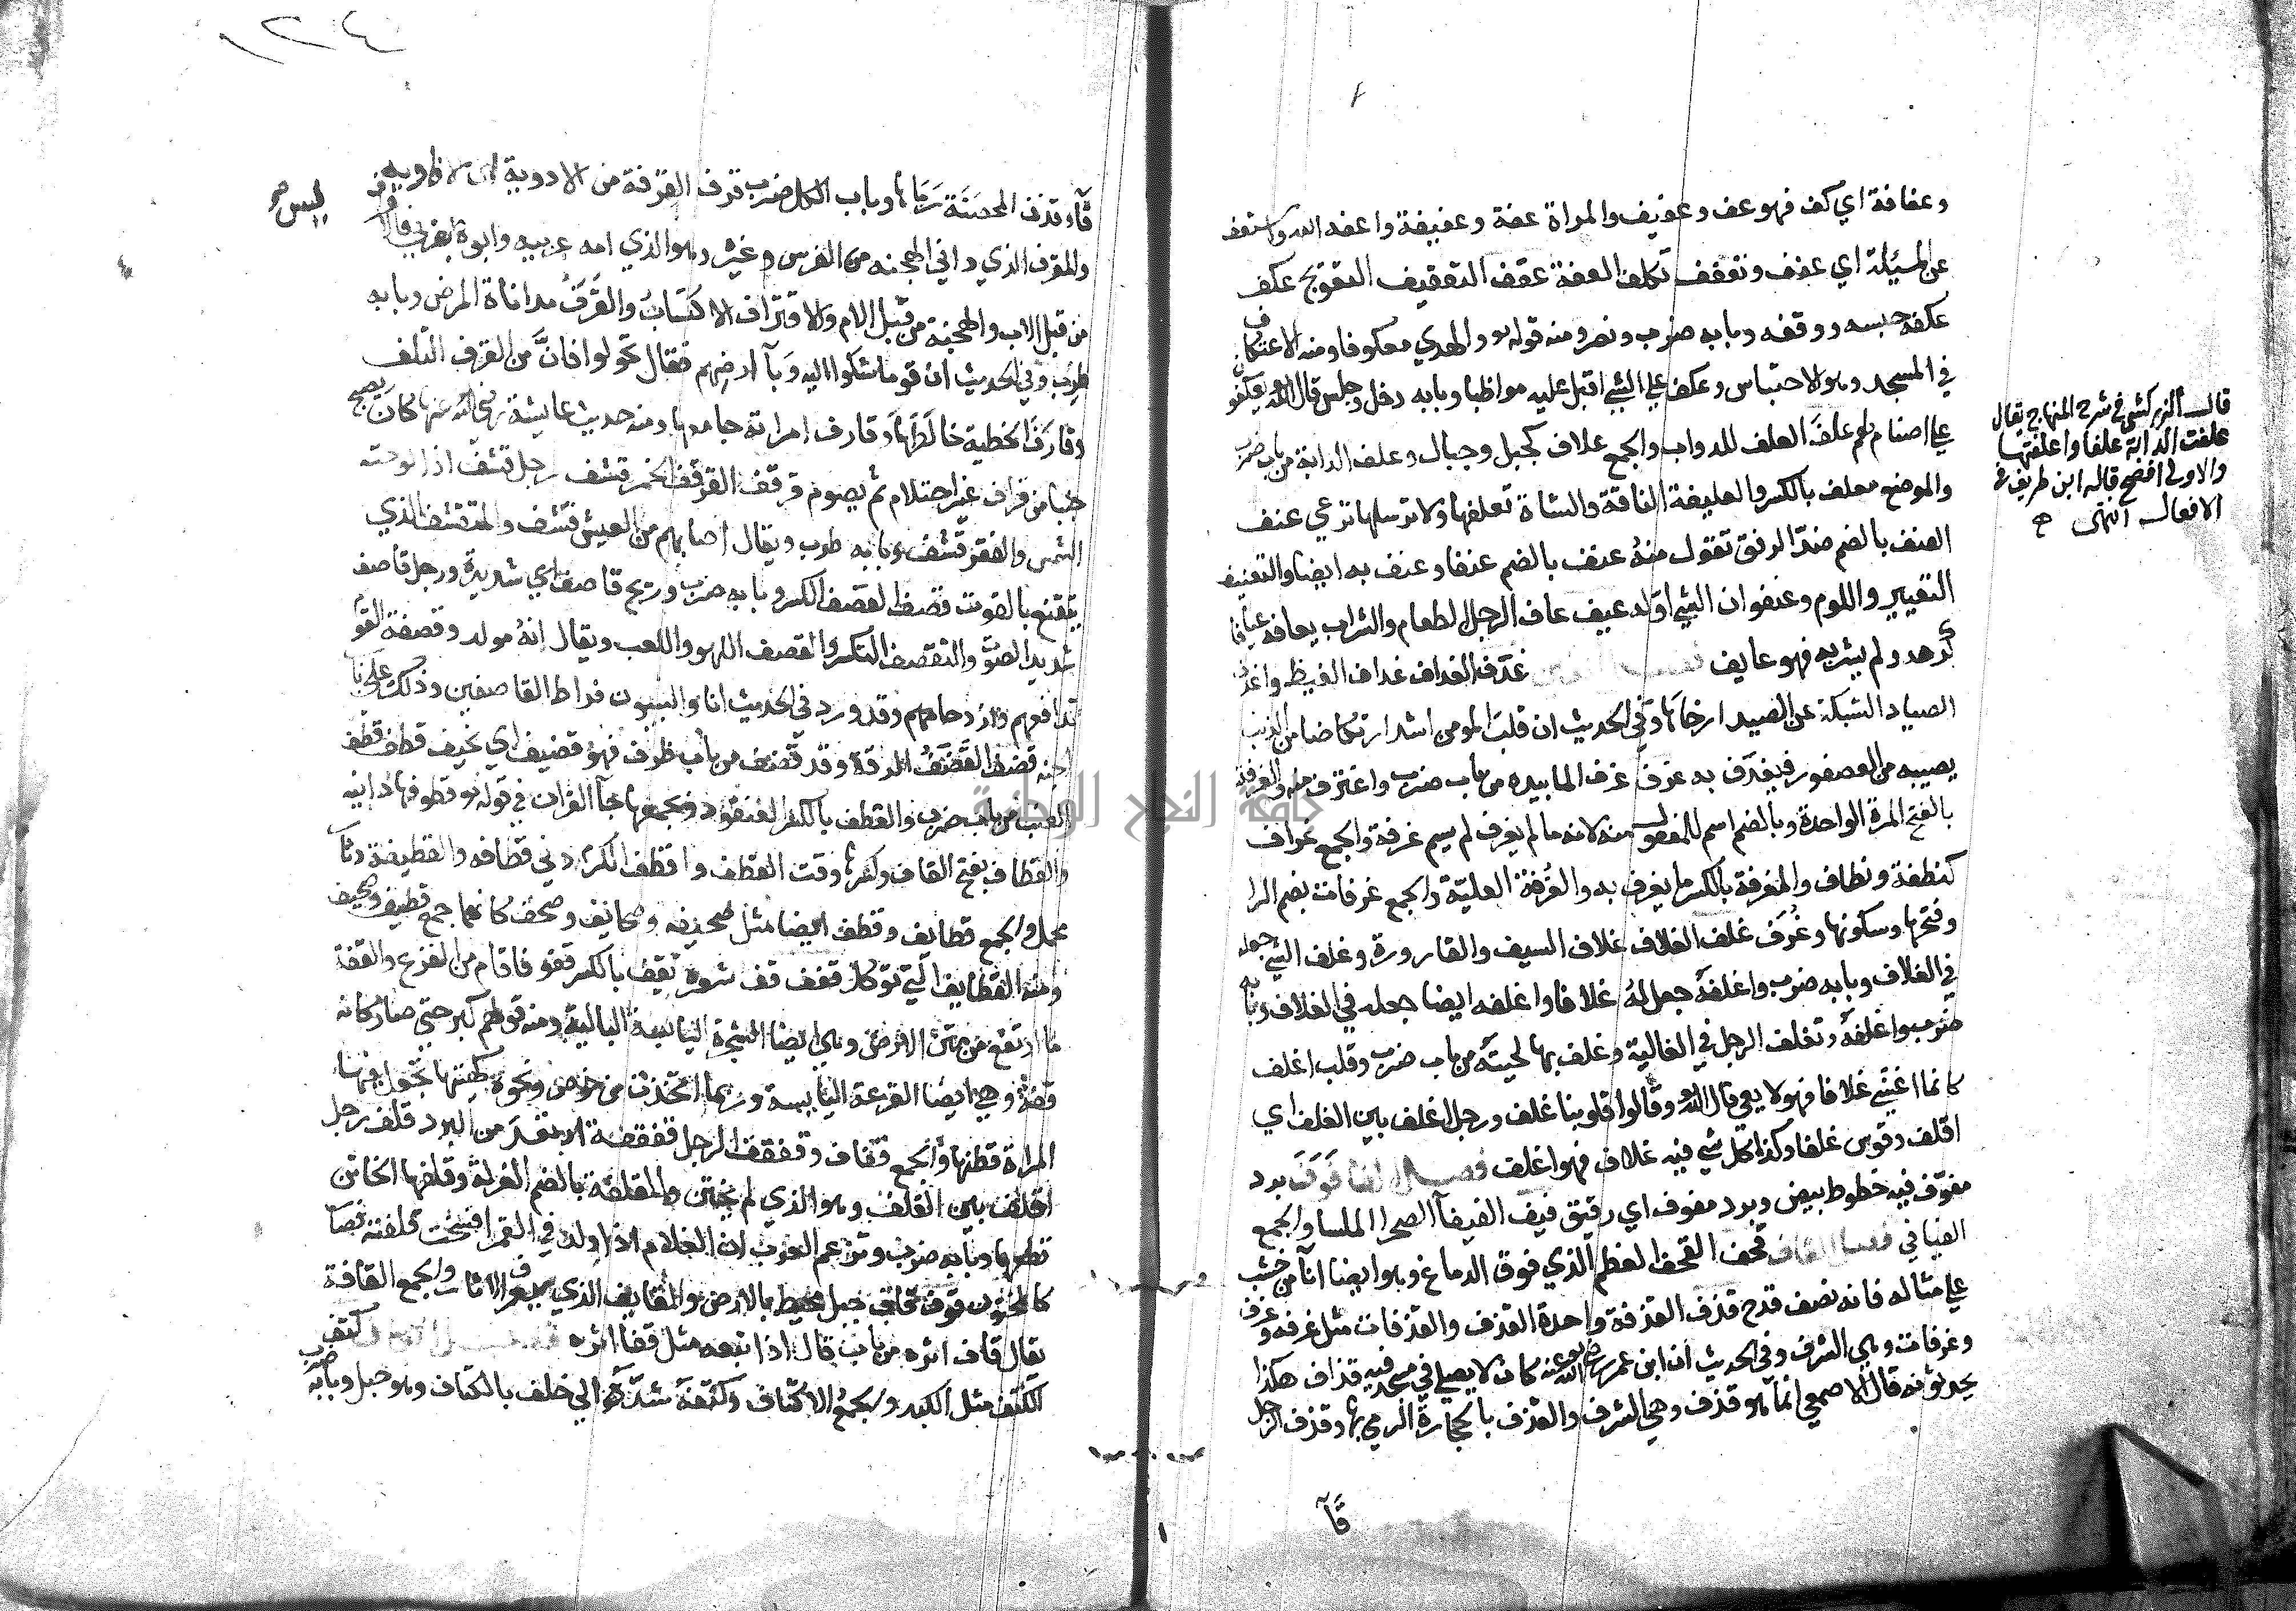 وعفافة اي كف فهو عف وعفيف والمراة عفة وعفيفة واعفه الله واستعف
عن المسئلة اي عف وتعفف تكلف العفة عقف التعقيف التعويج عكف
عكفه حبسه ووقفه وبابه ضرب ونصر ومنه قوله تع والهدي معكوفا ومنه الاعتكاف
في المسجد وهو الاحتباس وعكف علي الشيي اقبل عليه مواظبا وبابه دخل وجلس قال الله تع يعكفون
علي اصنام لهم علف العلف للدواب والجمع علاف كجبل وجبال وعلف الدابة من باب ضرب
والموضع معلف بالكسر والعليفة الناقة والشاة تعلفها ولا ترسلها ترعي عنف
العنف بالضم ضد الرفق تقول منه عنف بالضم عنفا وعنف به ايضا والتعنيف
التعيير واللوم وعنفوان الشيي اوله عيف عاف الرجل الطعام والشراب يعافه عيافا
كرهه ولم يشربه فهو عايف غدف الغداف غداف الغيظ واغدف
الصياد الشبكة عن الصيد ارخاها وفي الحديث ان قلب المومن اشد ارتكاضا من الذنب
يصيبه من العصفور فيغدف به غرف غرف الما بيده من باب ضرب واغترف منه والغرفة
بالفتح المرة الواحدة وبالضم اسم للمفعول منه لانه مالم يغرف لم يسم غرفة والجمع غراف
كنطفة ونطاف والمغرفة بالكسر ما يغرف به والغرفة العلية والجمع غرفات بضم الرا
وفتحها وسكونها وغرف غلف الغلاف غلاف السيف والقارورة وغلف الشيي جعله
في الغلاف وبابه ضرب واغلفه جعل له غلافا واغلفه ايضا جعله في الغلاف وبابه
ضرب واغلفه وتغلف الرجل في الغالية وغلف بها لحيته من باب ضرب وقلب اغلف
كانما اغشي غلافا فهو لا يعي قال الله تع وقالوا قلوبنا غلف ورجل اغلف بين الغلف اي
اقلف وقوس غلفا وكذا كل شيي فيه غلاف فهو اغلف فصل الفا فوف برد
مفوف فيه خطوط بيض وبرد مفوف اي رقيق فيف الفيفآ الصحرا الملسا والجمع
الفيافي فصل القاف قحف القحف العظم الذي فوق الدماغ وهو ايضا انآ من خشب
علي مثاله فانه نصف قدح قذف القذفة واحدة القذف والقذفات مثل غرفه وغرف
وغرفات وهي الشرف وفي الحديث ان ابن عمر رضي الله عنه كان لا يصلي في مسجد فيه قذاف هكذا
يحدثونه قال الاصمعي انما هو قذف وهي الشرف والقذف بالحجارة الرمي بها وقذف الرجل
قآ
قال الزركشي في شرح المنهاج يقال
علفت الدابة علفا واعلفتها
والاولي افصح قاله ابن طريف في
الافعال انتهى
١٢٤
قآء وقذف المحصنة رماها وباب الكل ضرب قرف القرفة من الادوية
والمقرف الذي داني الهجنه من الفرس وغيره وهو الذي امه عربيه وابوه
من قبل الاب والهجنة من قبل الام والاقتراف الاكتساب والقرف مداناة المرض وبابه
طرب وفي الحديث ان قوما شكوا اليه وبآ ارضهم فقال تحولوا فان من القرف التلف
وقارف الخطية خالطها وقارف امراته جامعها ومنه حديث عايشة رضي الله عنها كان يصبح
جنبا من قراف غير احتلام ثم يصوم قرقف القرقف الخمر قشف رجل قشف اذا لوحته
الشمس والفقر قشف وبابه طرب ويقال اصابهم من العيش قشف والمتقشف الذي
يتقنع بالقوت قصف القصف الكسر وبابه ضرب وريح قاصف اي شديدة ورجل قاصف
شديد الصوت والتقصف التكسر والقصف اللهو واللعب ويقال انه مولد وقصفة القوم
تدافعهم وازدحامهم وقد ورد في الحديث انا والنبيون فراط القاصفين وذلك علي باب
الجنه قضف القضف الدقة وقد قضف من باب ظرف فهو قضيف اي نحيف قطف قطف
العنب من باب ضرب والقطف بالكسر العنقود وبجمعها جآ القران في قوله تع قطوفها دانيه
والقطاف بفتح القاف وكسرها وقت القطف واقطف الكرم دني قطافه والقطيفة دثار
مخمل والجمع قطايف وقطف ايضا مثل صحيفه وصحايف وصحف كانهما جمع قطيف وصحيف
ومنه القطايف التي توكل قفف قف شعره يقف بالكسر قفو فا قام من الفزع والقفة
ما ارتفع من متن الارض وهي ايضا الشجرة اليابسة البالية ومنه قولهم كبر حتي صار كانه
قفة وهي ايضا القرعة اليابسة وربما اتخذت من خوص ونحوه كهيتها تجعل فيها
المراة قطنها والجمع قفاف وقفقف الرجل قفقفة ارتعد من البرد قلف رجل
اقلف بين القلف وهو الذي لم يختن والقلفة بالضم الغرلة وقلفها الخاتن
قطعها وبابه ضرب وتزعم العرب ان الغلام اذا ولد في القمرا فسخت قلفته فصار
كالمختون قوف قاف جبل محيط بالارض والقايف الذي يعرف الاثار والجمع القافة
يقال قاف اثره من باب قال اذا تبعه مثل قفا اثره كتف
الكتف مثل الكبد والجمع الاكتاف وكتفه شد يديه الي خلف بالكتاف وهو حبل وبابه ضرب
جامعة النجاح الوطنية